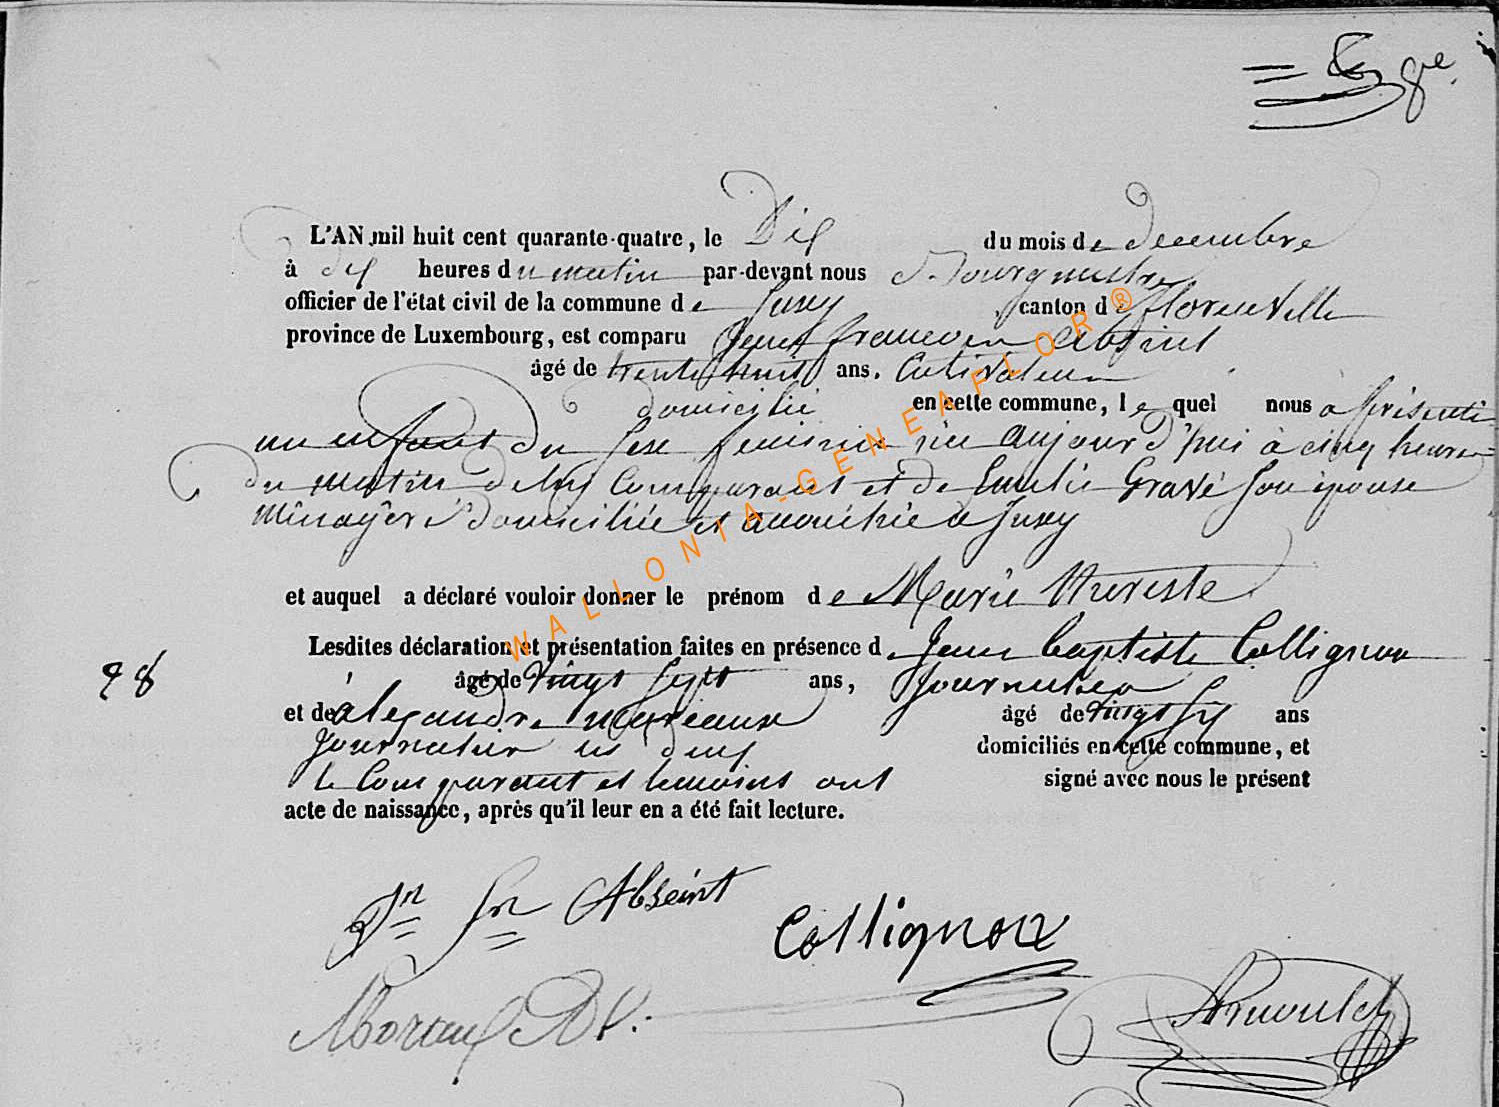 8e
L'AN mil huit cent quarante-quatre, le Dix du mois de decembre
à dix heures du matin par-devant nous Bourgmestre
officier de l'état civil de la commune de Jusey canton de florenville
province de Luxembourg, est comparu Jean francois Absint
âgé de trente huit ans. Cultivateur
domicilié en cette commune, le quel nous a présenté
un enfant du sexe feminin née aujourd'hui à cinq heures
du matin de luy Comparant et de Emelie Gravé son épouse
Ménagère domiciliée et à Jusey
et auquel a déclaré vouloir donner le prénom de Marie thereste
Lesdites déclaration et présentation faites en présence de Jean baptiste Collignon
98
âgé de vingt sept ans, Journalier
et de alexandre moreaux âgé de vingt six ans
Journalier les deux domiciliés en cette commune, et
le Comparant et temoins ont signé avec nous le présent
acte de naissance, après qu'il leur en a été fait lecture.
Jn fn Abseint
Collignon
Moraux
Arnould
WALLONIA-GENEAFLOR®